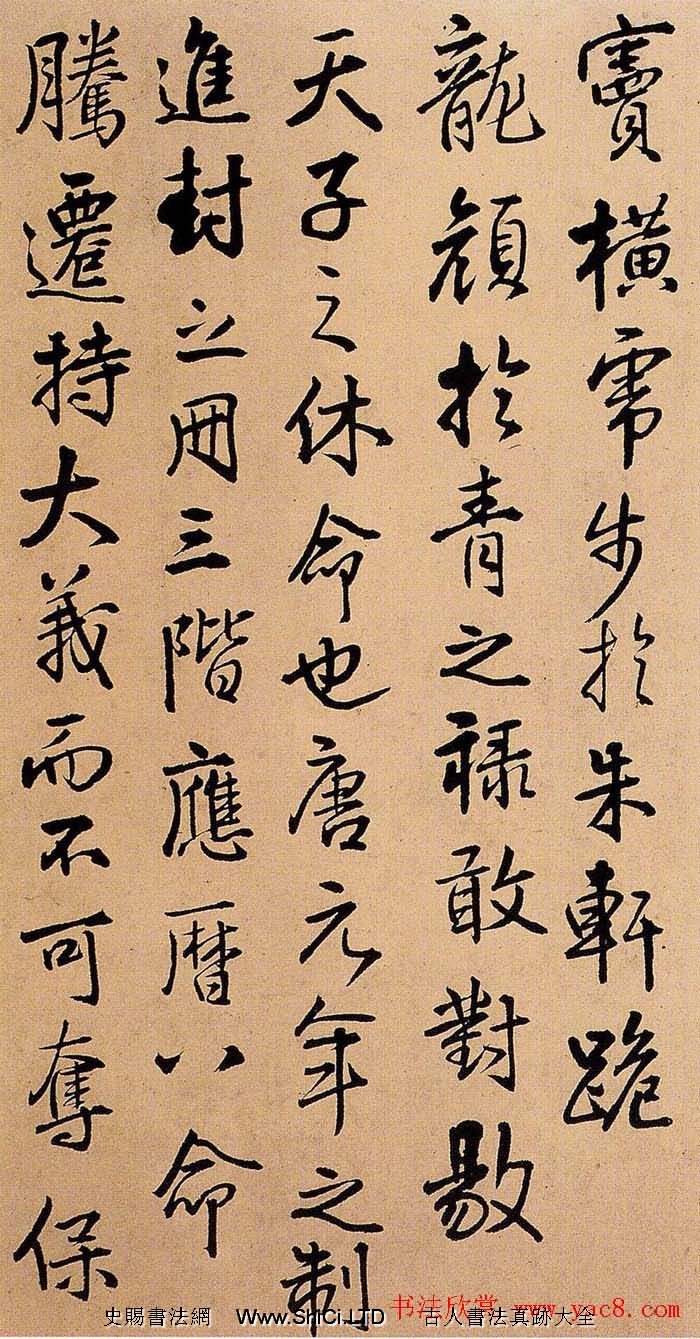 橫步於朱軒跪
龍顏於青之禄敢對敭
天子之休命也唐元年之制
進封之册三階應曆八命
騰遷持大義而不可奪保
书法欣赏 www.yac8.com
史賜書法網 Www.ShiCi.LTD 古人書法真跡大全